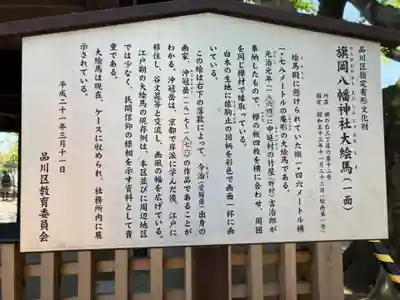 品川区指定有形文化財
旗岡八幡神社大絵馬(一面)
所在 旗の台三丁目六番十二号
絵馬殿に懸けられていた縦一・四六メートル横
一・七八メートルの庵形の大絵馬である。
元治元年(一八六四)中延村の竹屋(野村)吉治郎が
奉納したもので、欅の板四枚を横に合わせ、周囲
を同じ欅材で縁取っている。
白木の生地に猿駒止の図柄を彩色で画面一杯に画
いている。
この絵は右下の落款によって、今治(愛媛県)出身の
画家、沖冠岳(一八一七~一八七六)の作品であることが
わかる。沖冠岳は、京都で岸派に学んだ後、江戸に
移住し、谷文晁等と交流し、画風の幅を広げている。
江戸期の大絵馬の現存例は、本区並びに周辺地区
では少なく、民間信仰の様相を示す資料として貴
重である。
大絵馬は現在、ケースに収められ、社務所内に展
示されている。
平成二十一年三月三十一日
品川区教育委員会